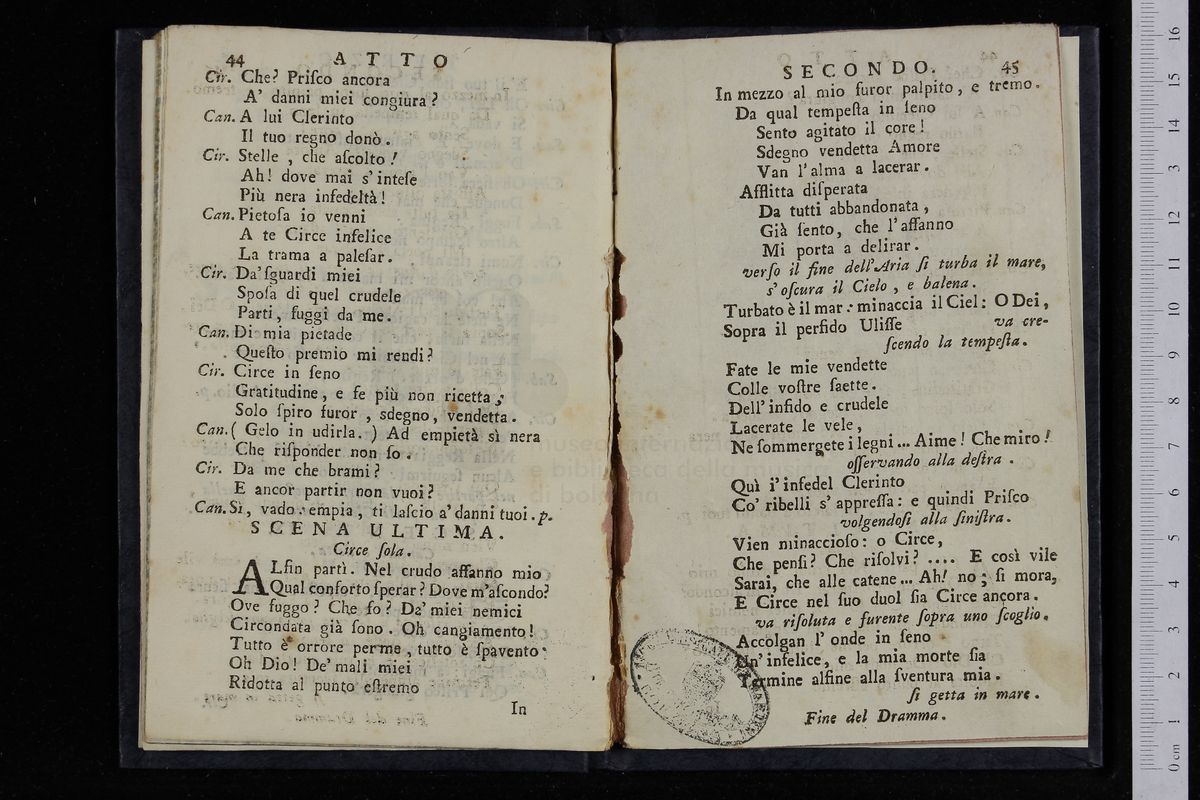 44 ATTO
Cir. Che? Priſco ancora
A' danni miei congiura?
Can. A lui Clerinto
Il tuo regno donò.
Cir. Stelle, che aſcolto!
Ah! dove mai s'inteſe
Più nera infedeltà!
Can. Pietoſa io venni
A te Circe infelice
La trama a paleſar.
Cir. Da' ſguardi miei
Spoſa di quel crudele
Parti, fuggi da me.
Can. Di mia pietade
Queſto premio mi rendi?
Cir. Circe in ſeno
Gratitudine, e fe più non ricetta,
Solo ſpiro furor, sdegno, vendetta.
Can. (Gelo in udirla.) Ad empietà sì nera
Che riſponder non ſo.
Cir. Da me che brami?
E ancor partir non vuoi?
Can. Sì, vado: empia, ti laſcio a' danni tuoi. p.
SCENA ULTIMA.
Circe ſola.
ALfin partì. Nel crudo affanno mio
Qual conforto ſperar? Dove m'aſcondo?
Ove fuggo? Che fo? Da' miei nemici
Circondata già ſono. Oh cangiamento!
Tutto è orrore per me, tutto è ſpavento.
Oh Dio! De' mali miei
Ridotta al punto eſtremo
In
SECONDO. 45
In mezzo al mio furor palpito, e tremo.
Da qual tempeſta in ſeno
Sento agitato il core!
Sdegno vendetta Amore
Van l'alma a lacerar.
Afflitta diſperata
Da tutti abbandonata,
Già ſento, che l'affanno
Mi porta a delirar.
verſo il fine dell'Aria ſi turba il mare,
s'oſcura il Cielo, e balena.
Turbato è il mar: minaccia il Ciel: O Dei,
Sopra il perfido Uliſſe va cre-
ſcendo la tempeſta.
Fate le mie vendette
Colle voſtre ſaette.
Dell'infido e crudele
Lacerate le vele,
Ne ſommergete i legni... Aime! Che miro!
oſſervando alla deſtra.
Quì l'infedel Clerinto
Co' ribelli s'appreſſa: e quindi Priſco
volgendoſi alla ſiniſtra.
Vien minaccioſo: o Circe,
Che penſi? Che riſolvi? .... E così vile
Sarai, che alle catene... Ah! no; ſi mora,
E Circe nel ſuo duol ſia Circe ancora.
va riſoluta e furente ſopra uno ſcoglio.
Accolgan l'onde in ſeno
Un'infelice, e la mia morte ſia
Termine alfine alla ſventura mia.
ſi getta in mare.
Fine del Dramma.
museo internazionale
e biblioteca della musica
di bologna
0 cm 1 2 3 4 5 6 7 8 9 10 11 12 13 14 15 16